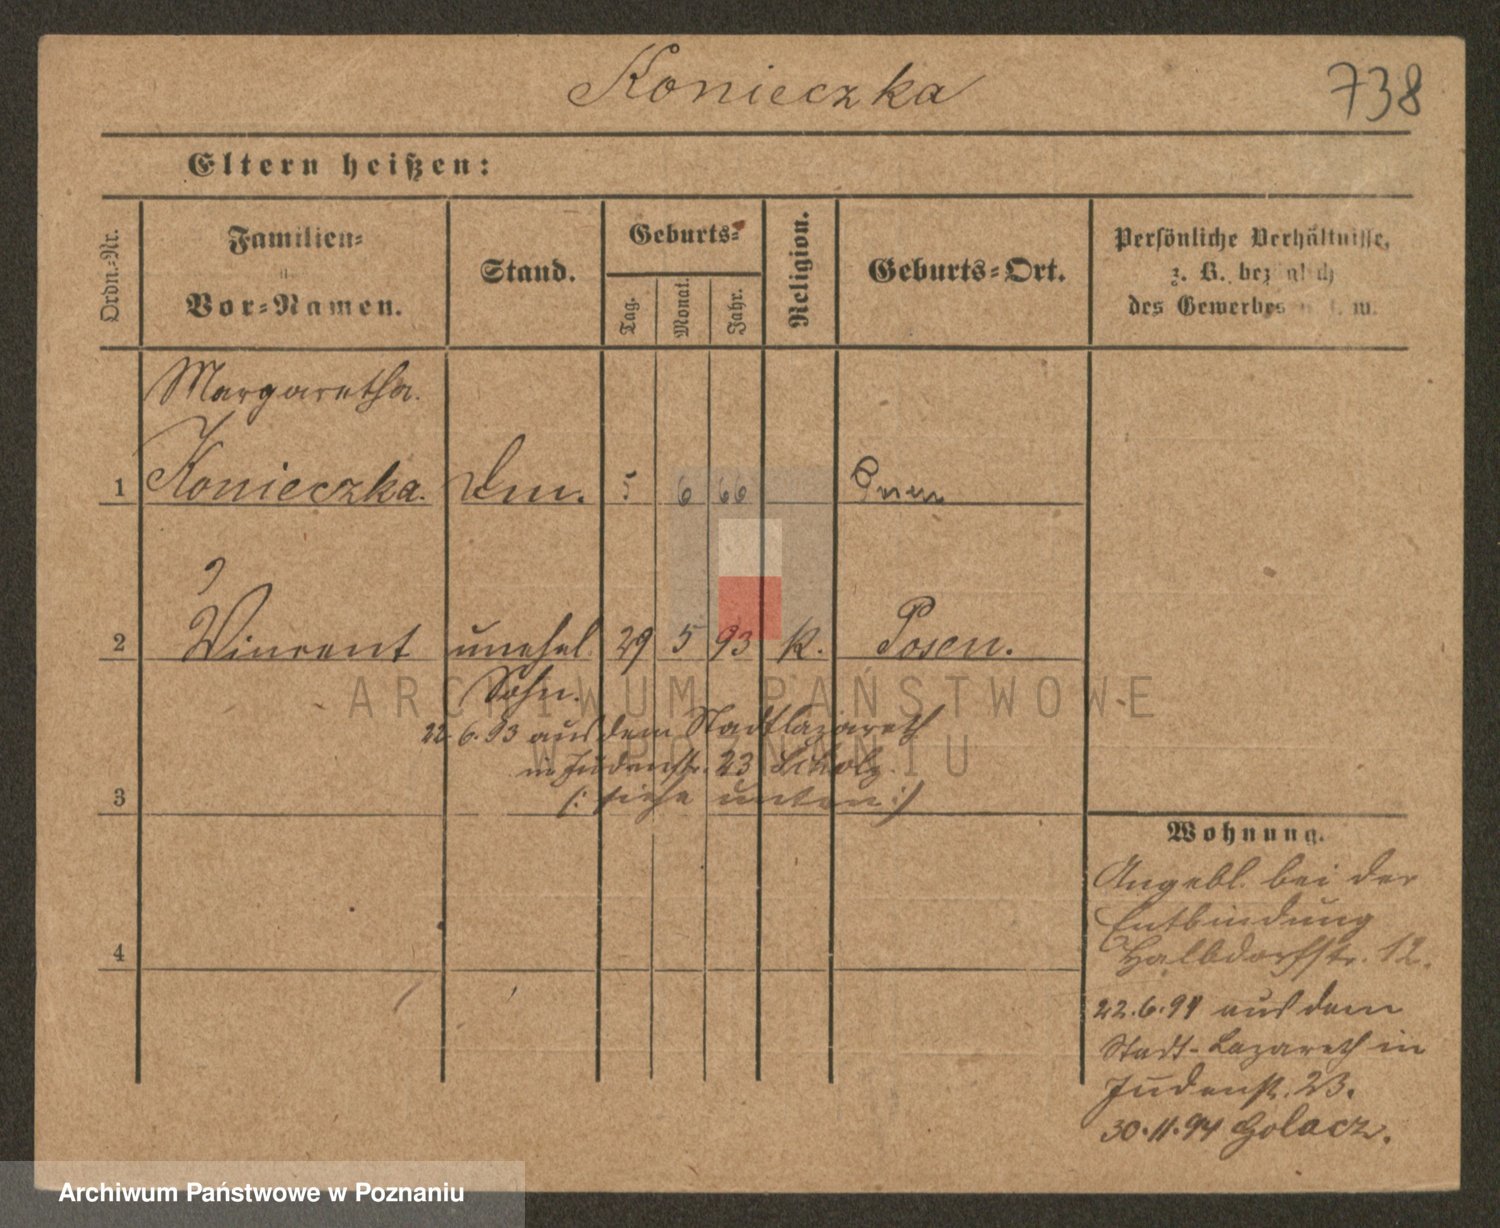 Konieczka
738
Eltern heißen:
Ordn.-Nr.
Familien-
u.
Vor-Namen.
Stand.
Geburts-
Tag.
Monat.
Jahr.
Religion.
Geburts-Ort.
Persönliche Verhältnisse,
z. B. bezüglich
des Gewerbes u. s. w.
Margaretha
1 Konieczka. 5 6 66
2 Vincent unehel. 29 5 93 K. Posen.
Sohn.
22.6.93 aus dem Stadtlazareth
in Judenstr. 23
(: siehe unten :)
3
4
Wohnung.
Angebl. bei der
Entbindung
Halbdorfstr. 12.
22.6.94 aus dem
Stadt-Lazareth in
Judenstr. 23.
30.11.94
ARCHIWUM PAŃSTWOWE
W POZNANIU
Archiwum Państwowe w Poznaniu